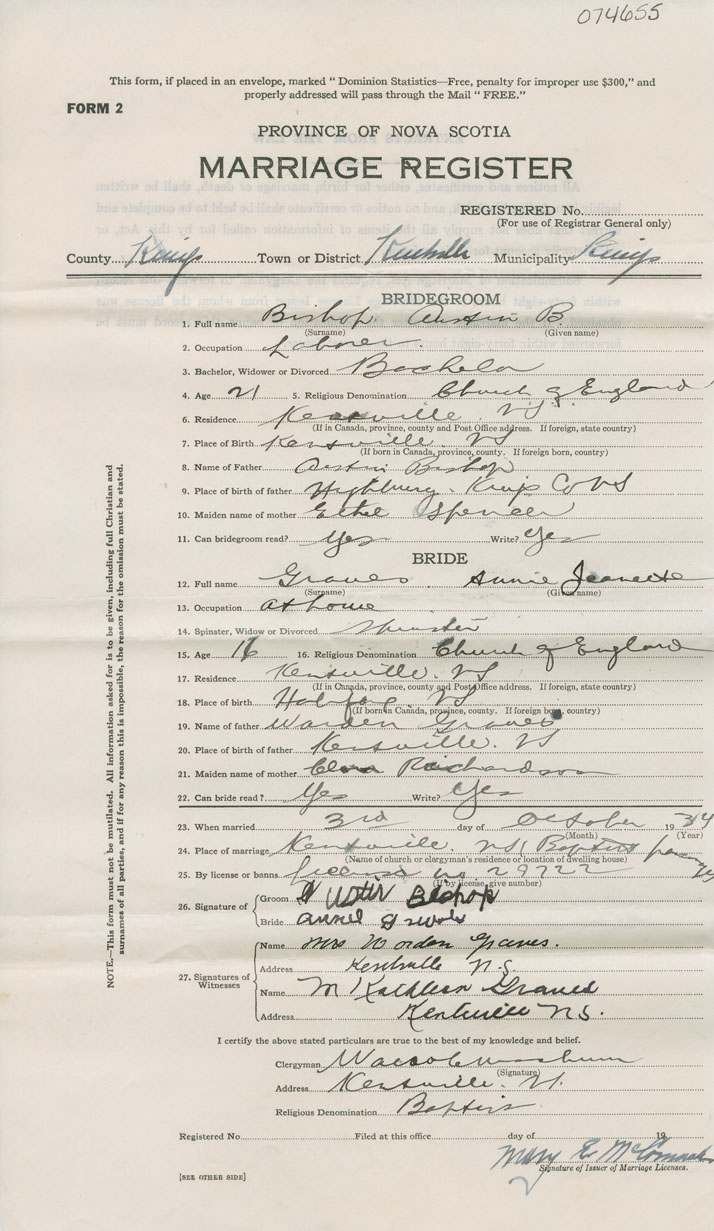 074655
This form, if placed in an envelope, marked " Dominion Statistics—Free, penalty for improper use $300," and
properly addressed will pass through the Mail " FREE."
FORM 2
PROVINCE OF NOVA SCOTIA
MARRIAGE REGISTER
REGISTERED No.
(For use of Registrar General only)
County Kings Town or District Kentville Municipality Kings
BRIDEGROOM
1. Full name Bishop Austin B.
(Surname) (Given name)
2. Occupation Laborer
3. Bachelor, Widower or Divorced Bachelor
4. Age 21 5. Religious Denomination Church of England
6. Residence Kentville. NS
(If in Canada, province, county and Post Office address. If foreign, state country)
7. Place of Birth Kentville NS
(If born in Canada, province, county. If foreign born, country)
8. Name of Father Austin Bishop
9. Place of birth of father Highbury. Kings Co NS
10. Maiden name of mother Ethel Spencer
11. Can bridegroom read? Yes Write? Yes
BRIDE
12. Full name Graves Annie Jeanette
(Surname) (Given name)
13. Occupation at home
14. Spinster, Widow or Divorced Spinster
15. Age 16 16. Religious Denomination Church of England
17. Residence Kentville. NS
(If in Canada, province, county and Post Office address. If foreign, state country)
18. Place of birth Halifax. NS
(If born in Canada, province, county. If foreign born, country)
19. Name of father Warden Graves
20. Place of birth of father Kentville. NS
21. Maiden name of mother Richardson
22. Can bride read? Yes Write? Yes
23. When married 3rd day of October 1934
(Month) (Year)
24. Place of marriage Kentville. NS (Baptist parsonage
(Name of church or clergyman's residence or location of dwelling house)
25. By license or banns license no 29722
(If by license, give number)
26. Signature of
Groom Bishop
Bride
27. Signatures of Witnesses
Name Mrs Worden Graves.
Address Kentville N.S.
Name M Kathleen Graves
Address Kentville N.S.
I certify the above stated particulars are true to the best of my knowledge and belief.
Clergyman
(Signature)
Address Kentville. NS.
Religious Denomination Baptist
Registered No. Filed at this office day of 19
Mary E. McCormack
Signature of Issuer of Marriage Licenses.
[SEE OTHER SIDE]
NOTE.—This form must not be mutilated. All information asked for is to be given, including full Christian and
surnames of all parties, and if for any reason this is impossible, the reason for the omission must be stated.